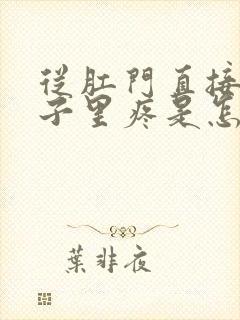 從肛門直接
子里疼是怎
葉非夜